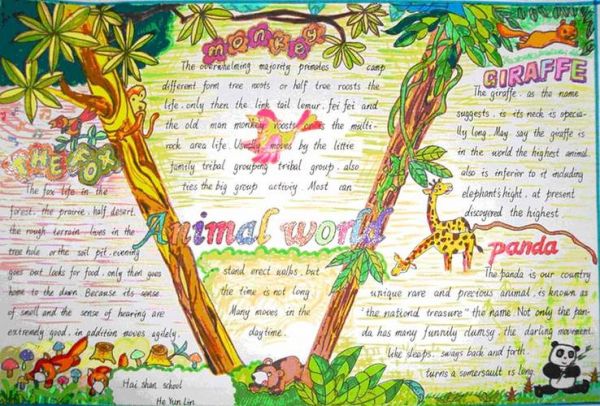 monkey
The overwhelming majority primates camp
different form tree roots or half tree roosts the
life. only then the link tail lemur. fei fei and
the old man monkey roosts the multi-
rock area life. Usually moves by the little
family tribal grouping tribal group. also
ties the big group activity. Most can
stand erect walks. but
the time is not long
Many moves in the
daytime.
Animal world
THE FOX
The fox life in the
forest. the prairie. half desert.
the rough terrain lives in the
tree hole or the soil pit. evening
goes out looks for food. only then goes
home to the dawn. Because its sense
of smell and the sense of hearing are
extremely good. in addition moves agilely.
Hai shan school
He Yun Lin
GIRAFFE
The giraffe. as the name
suggests. is its neck is especia-
lly long. May say the giraffe is
in the world the highest animal.
also is inferior to it including
elephant's hight. at present
discovered the highest.
panda
The panda is our country
unique rare and precious animal. is known as
"the national treasure" the name. Not only the pan-
da has many funnily clumsy. the darling movement.
like sleeps. sways back and forth.
turns a somersault is long.